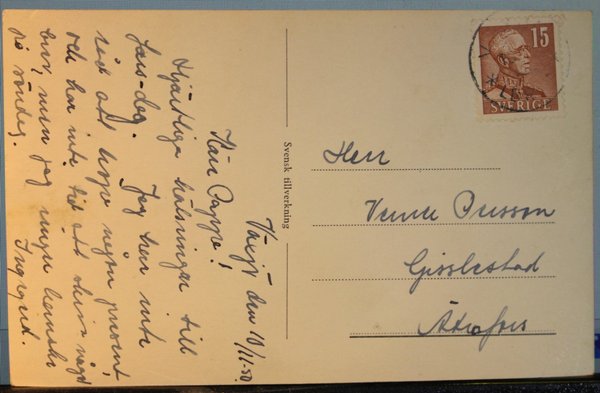 Växjö den 10/11-50.
Kära Pappa!
Hjärtliga hälsningar till
Fars-dag. Jag hann inte
att köpa någon present
och har inte tid att skriva något
brev, men jag ringer kanske
på söndag. Ingegerd.
Svensk tillverkning
15
SVERIGE
Herr
Persson
Gisslestad
Ätrafors